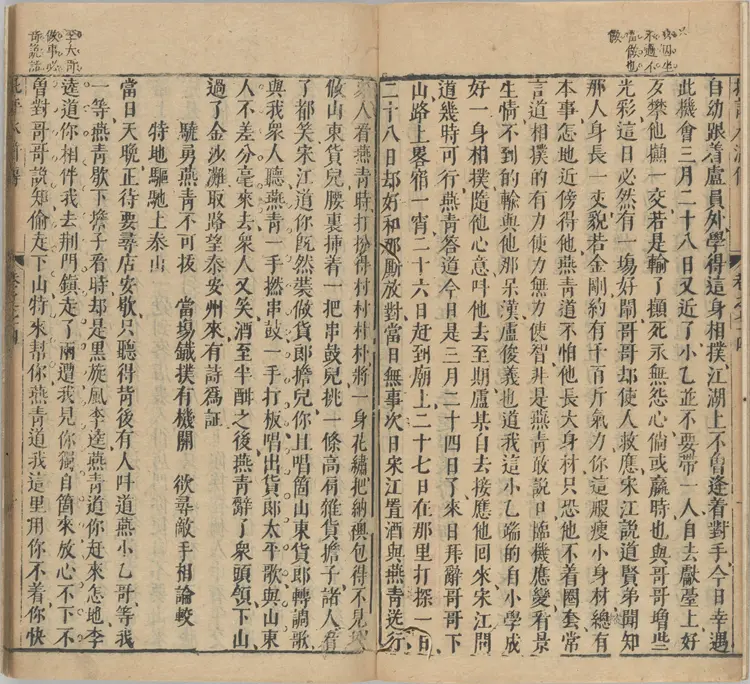 自幼跟着盧員外學得這身相撲江湖上不曾逢着對手今日幸遇
此機會三月二十八日又近了小乙並不要帶一人自去獻臺上好
歹攀他攧一交若是輸了攧死永無怨心倘或贏時也與哥哥增些
光彩這日必然有一場好鬧哥哥却使人救應宋江說道賢弟聞知
那人身長一丈貌若金剛約有千百斤氣力你這般瘦小身材總有
本事怎地近傍得他燕青道不怕他長大身材只恐他不着圈套常
言道相撲的有力使力無力使智非是燕青敢說口臨機應變看景
生情不到的輸與他那呆漢盧俊義也道我這小乙端的自小學成
好一身相撲隨他心意叫他去至期盧某自去接應他回來宋江問
道幾時可行燕青答道今日是三月二十四日了來日拜辭哥哥下
山路上畧宿一宵二十六日赶到廟上二十七日在那里打探一日
二十八日却好和那厮放對當日無事次日宋江置酒與燕青送行
衆人看燕青時打扮得村村朴朴將一身花繡把衲襖包得不見扮
做山東貨兒腰裏揷着一把串鼓兒挑一條高肩雜貨擔子諸人看
了都笑宋江道你既然裝做貨郎擔兒你且唱箇山東貨郎轉調歌
與我衆人聽燕青一手撚串鼓一手打板唱出貨郎太平歌與山東
人不差分毫來去衆人又笑酒至半酣之後燕青辭了衆頭領下山
過了金沙灘取路望泰安州來有詩爲証
驍勇燕青不可扳　當塲鐵撲有機關　欲尋敵手相論較
特地驅馳上泰山
當日天晚正待要尋店安歇只聽得背後有人叫道燕小乙哥等我
一等燕青歇下擔子看時却是黑旋風李逵燕青道你赶來怎地李
逵道你相伴我去荆門鎮走了兩遭我見你獨自箇來放心不下不
曾對哥哥說知偷走下山特來幫你燕青道我這里用你不着你快
李大哥
做事必